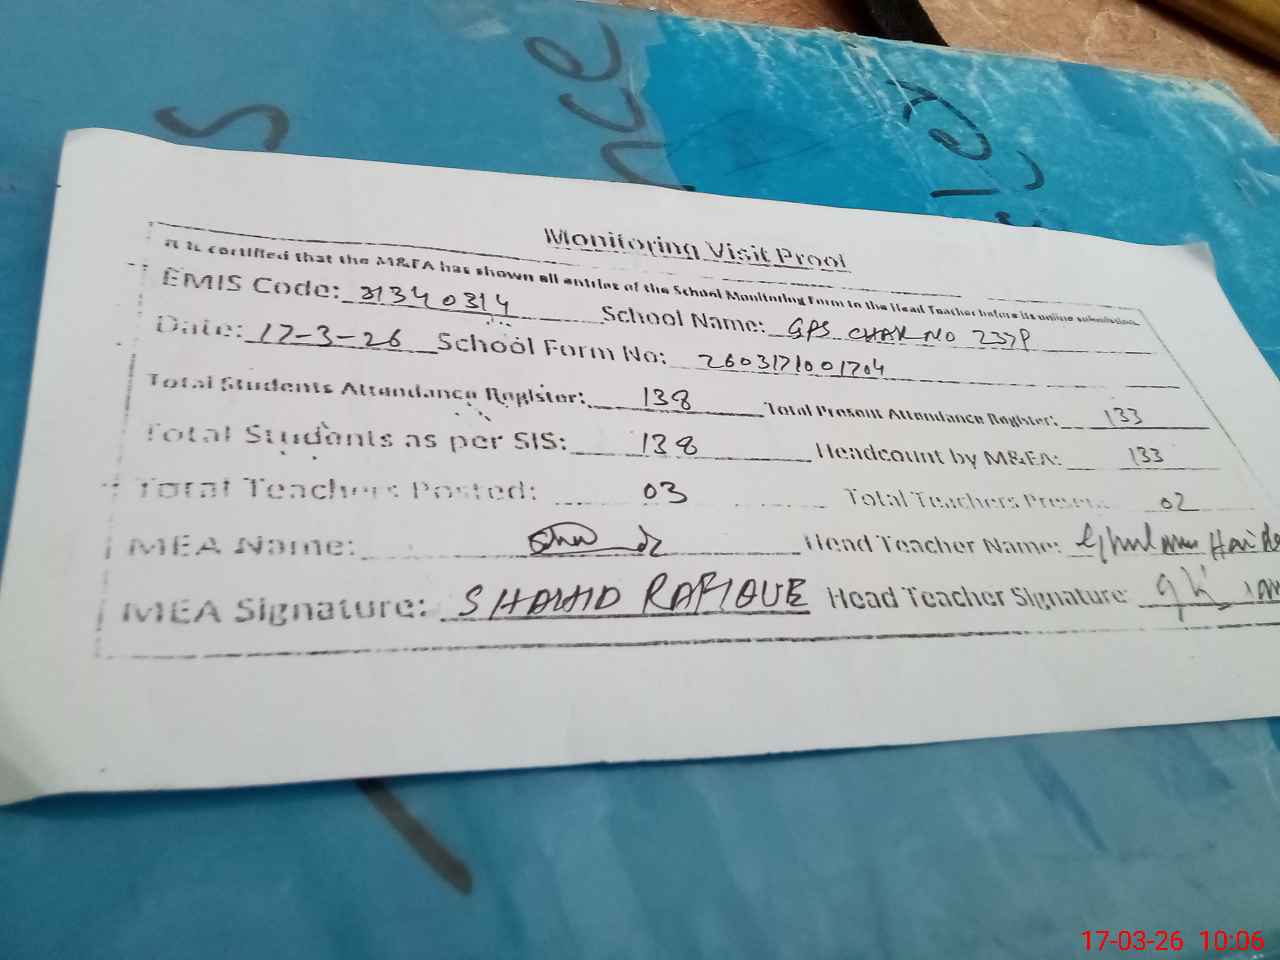 nce
Monitoring Visit Proof
It is certified that the M&EA has shown all entries of the School Monitoring Form to the Head Teacher before its online submission.
EMIS Code: 31340314 School Name: GPS CHAK NO 237P
Date: 17-3-26 School Form No: 2603171001704
Total Students Attendance Register: 138 Total Present Attendance Register: 133
Total Students as per SIS: 138 Headcount by M&EA: 133
Total Teachers Posted: 03 Total Teachers Present: 02
MEA Name: Head Teacher Name: Ghulam Haide
MEA Signature: SHAHID RAFIQUE Head Teacher Signature:
17-03-26 10:06